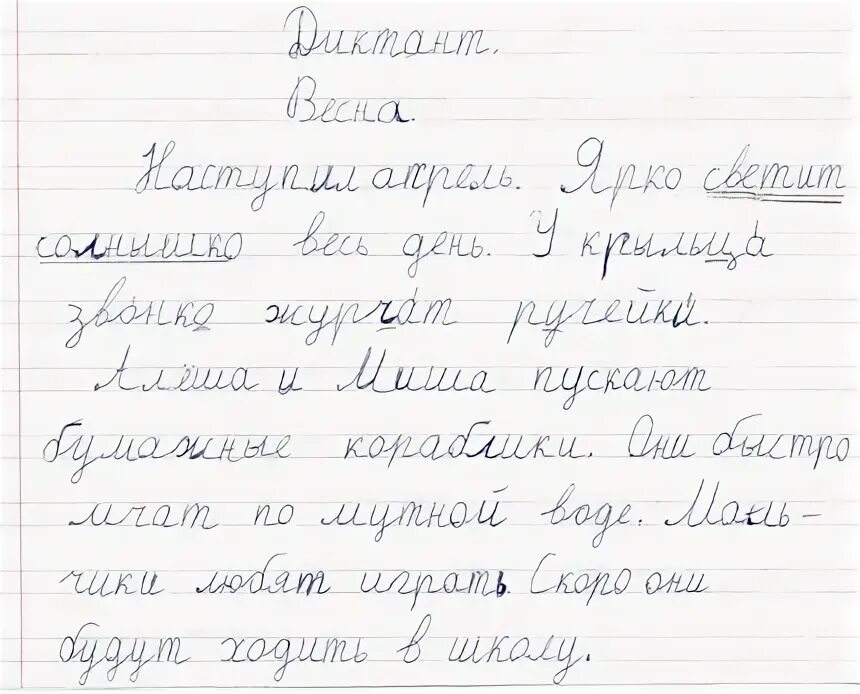 Диктант.
Весна.
Наступил апрель. Ярко светит
солнышко весь день. У крыльца
звонко журчат ручейки.
Алёша и Миша пускают
бумажные кораблики. Они быстро
мчат по мутной воде. Маль-
чики любят играть. Скоро они
будут ходить в школу.